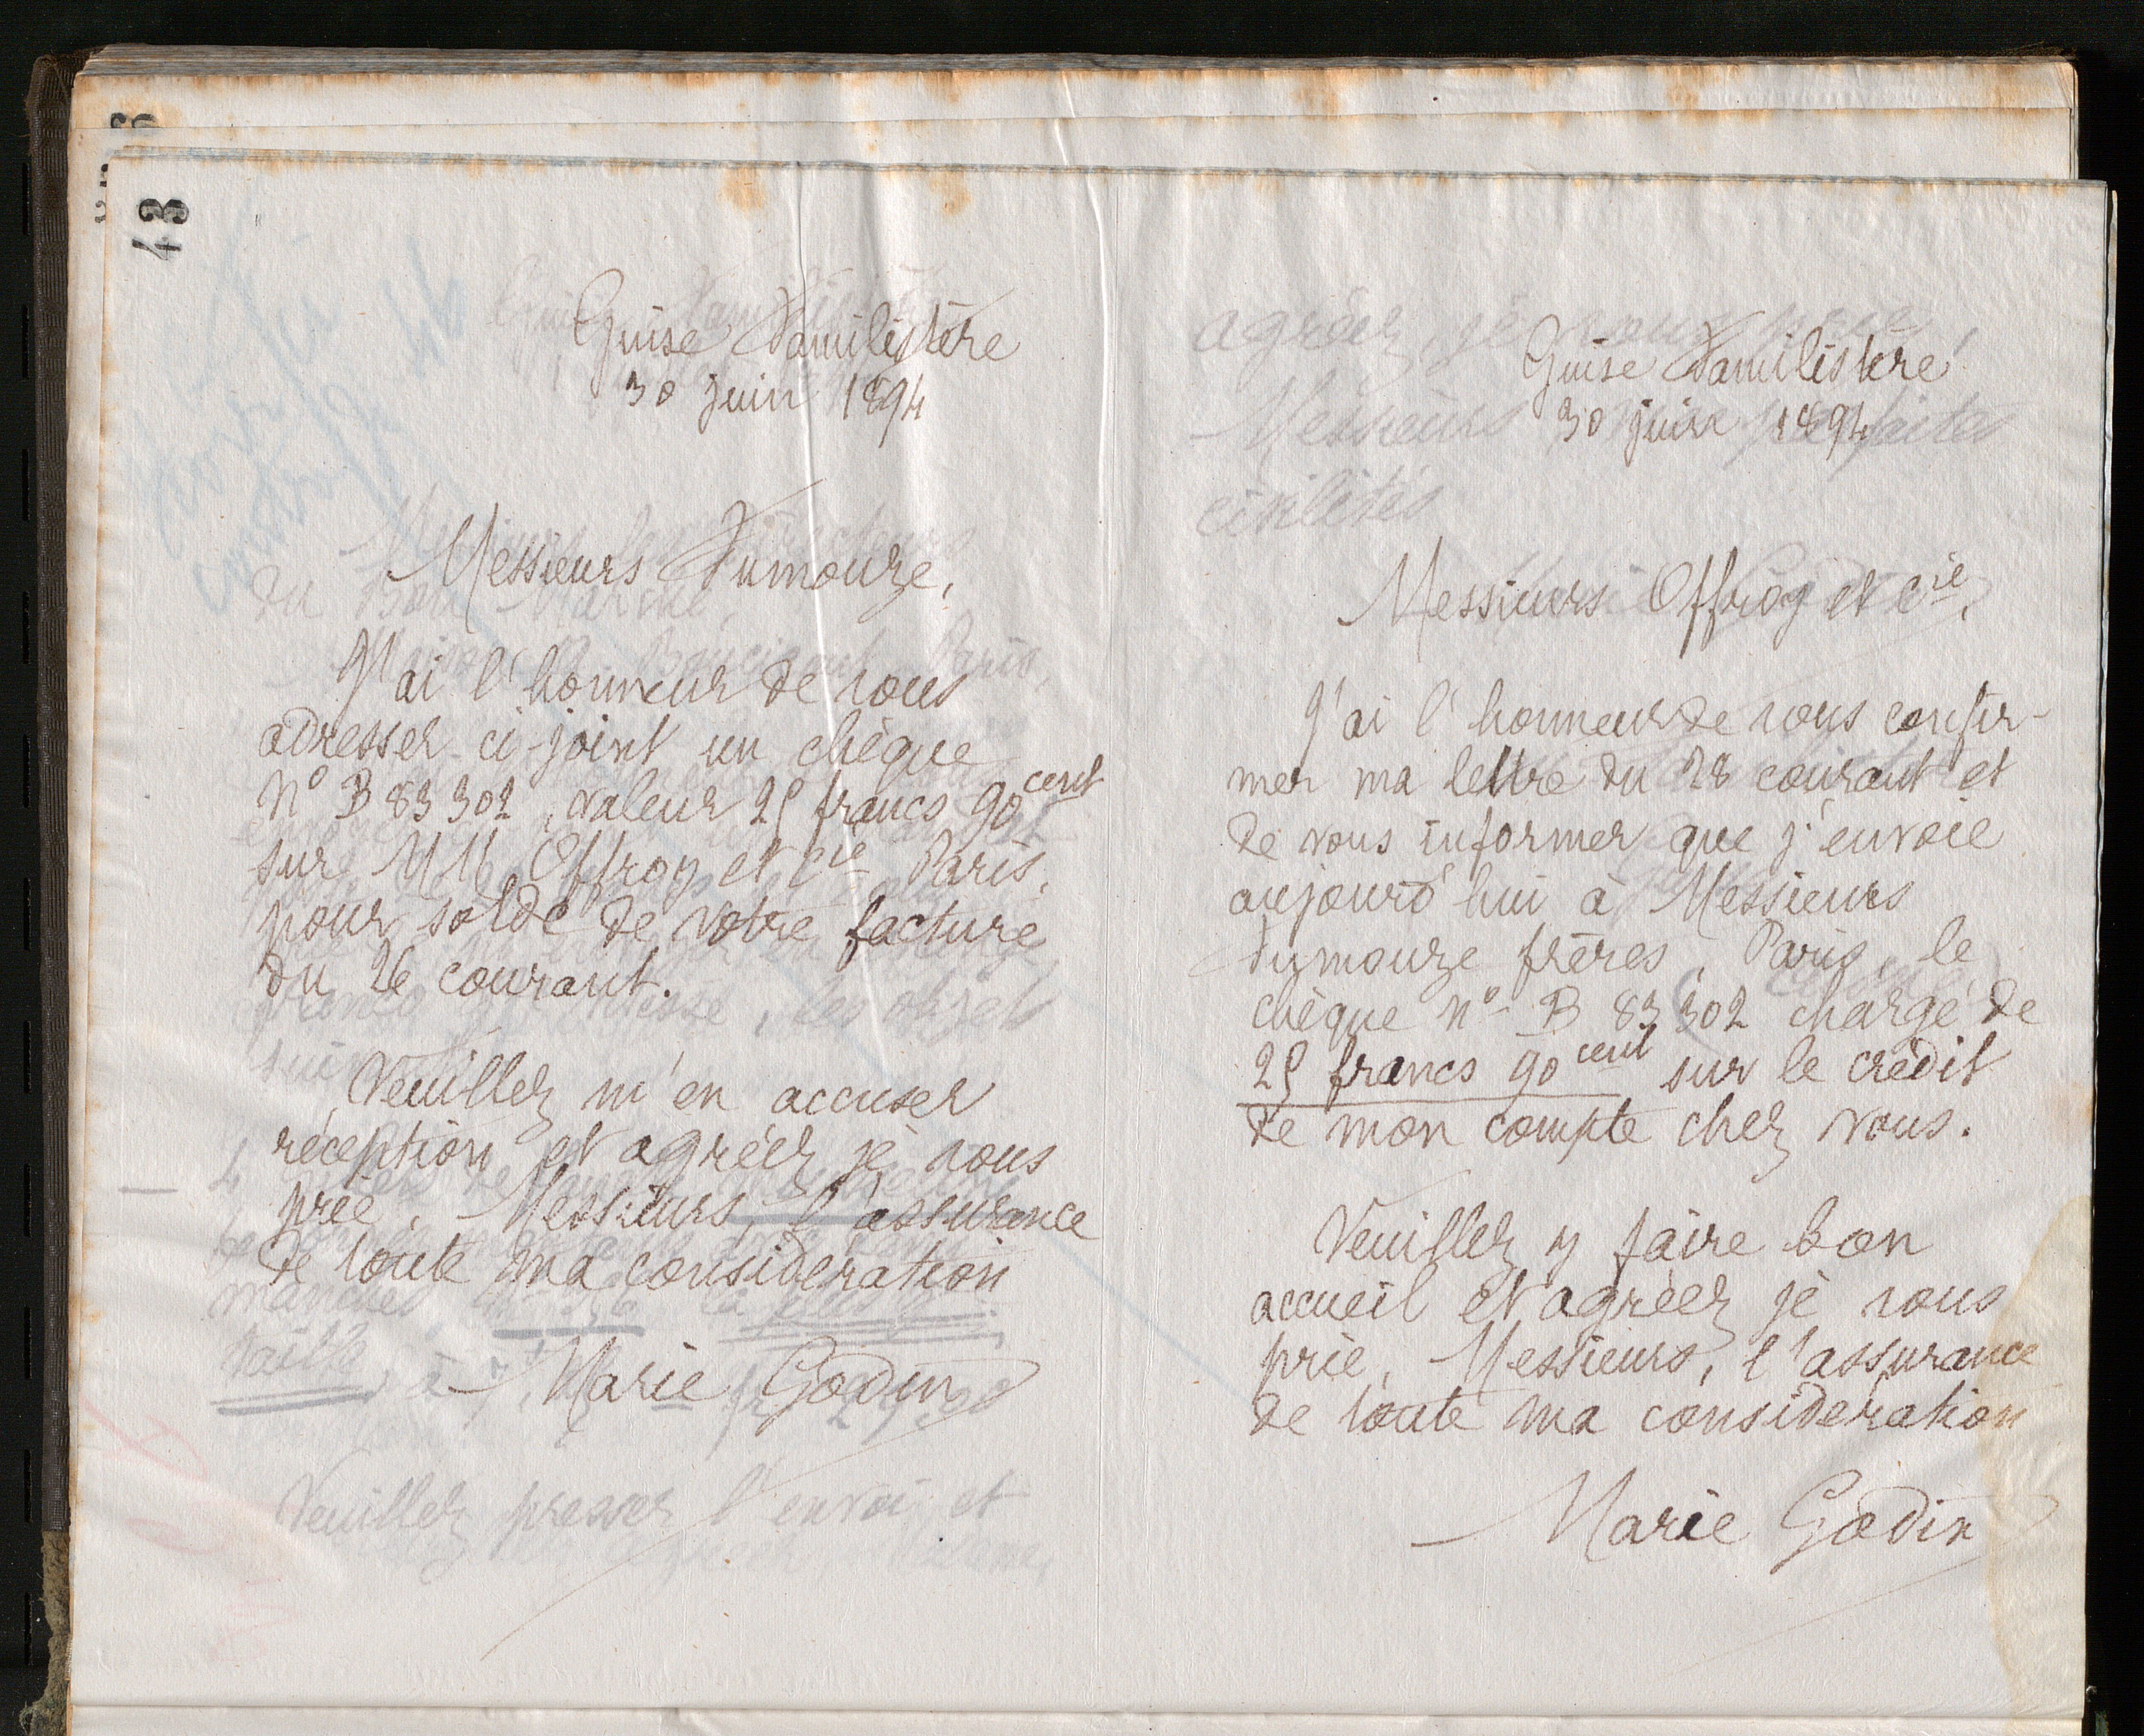 43
Guise Familistère
30 juin 1894
Messieurs Fumouze,
J'ai l'honneur de vous
adresser ci-joint un chèque
N° B 83302, valeur 25 francs 90 cent
sur MM. Offroy et Cie Paris,
pour solde de votre facture
du 26 courant.
Veuillez m'en accuser
réception et agréer, je vous
prie, Messieurs, l'assurance
de toute ma considération
Marie Godin
Guise Familistère
30 juin 1894
Messieurs Offroy et Cie,
J'ai l'honneur de vous confir-
mer ma lettre du 28 courant et
de vous informer que j'envoie
aujourd'hui à Messieurs
Fumouze frères, Paris, le
chèque N° B 83302 chargé de
25 francs 90 cent sur le crédit
de mon compte chez vous.
Veuillez y faire bon
accueil et agréer, je vous
prie, Messieurs, l'assurance
de toute ma considération
Marie Godin